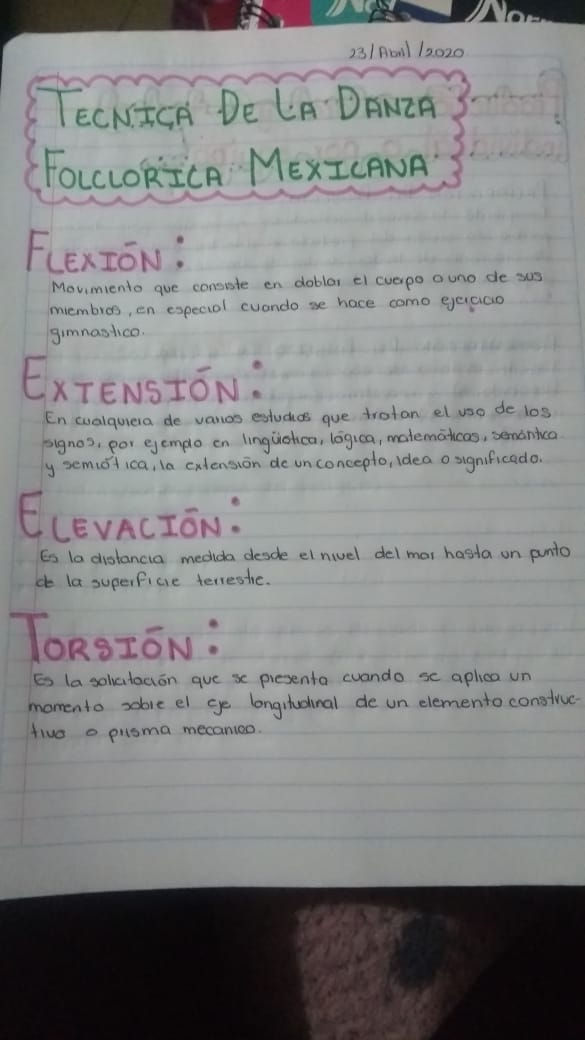 23/Abril/2020
TECNICA DE LA DANZA
FOLCLORICA MEXICANA
FLEXIÓN:
Movimiento que consiste en doblar el cuerpo o uno de sus
miembros, en especial cuando se hace como ejercicio
gimnastico.
EXTENSIÓN:
En cualquiera de varios estudios que tratan el uso de los
signos, por ejemplo en lingüística, lógica, matemáticas, semántica
y semiótica, la extensión de un concepto, idea o significado.
ELEVACIÓN:
Es la distancia medida desde el nivel del mar hasta un punto
de la superficie terrestre.
TORSIÓN:
Es la solicitación que se presenta cuando se aplica un
momento sobre el eje longitudinal de un elemento construc-
tivo o prisma mecanico.